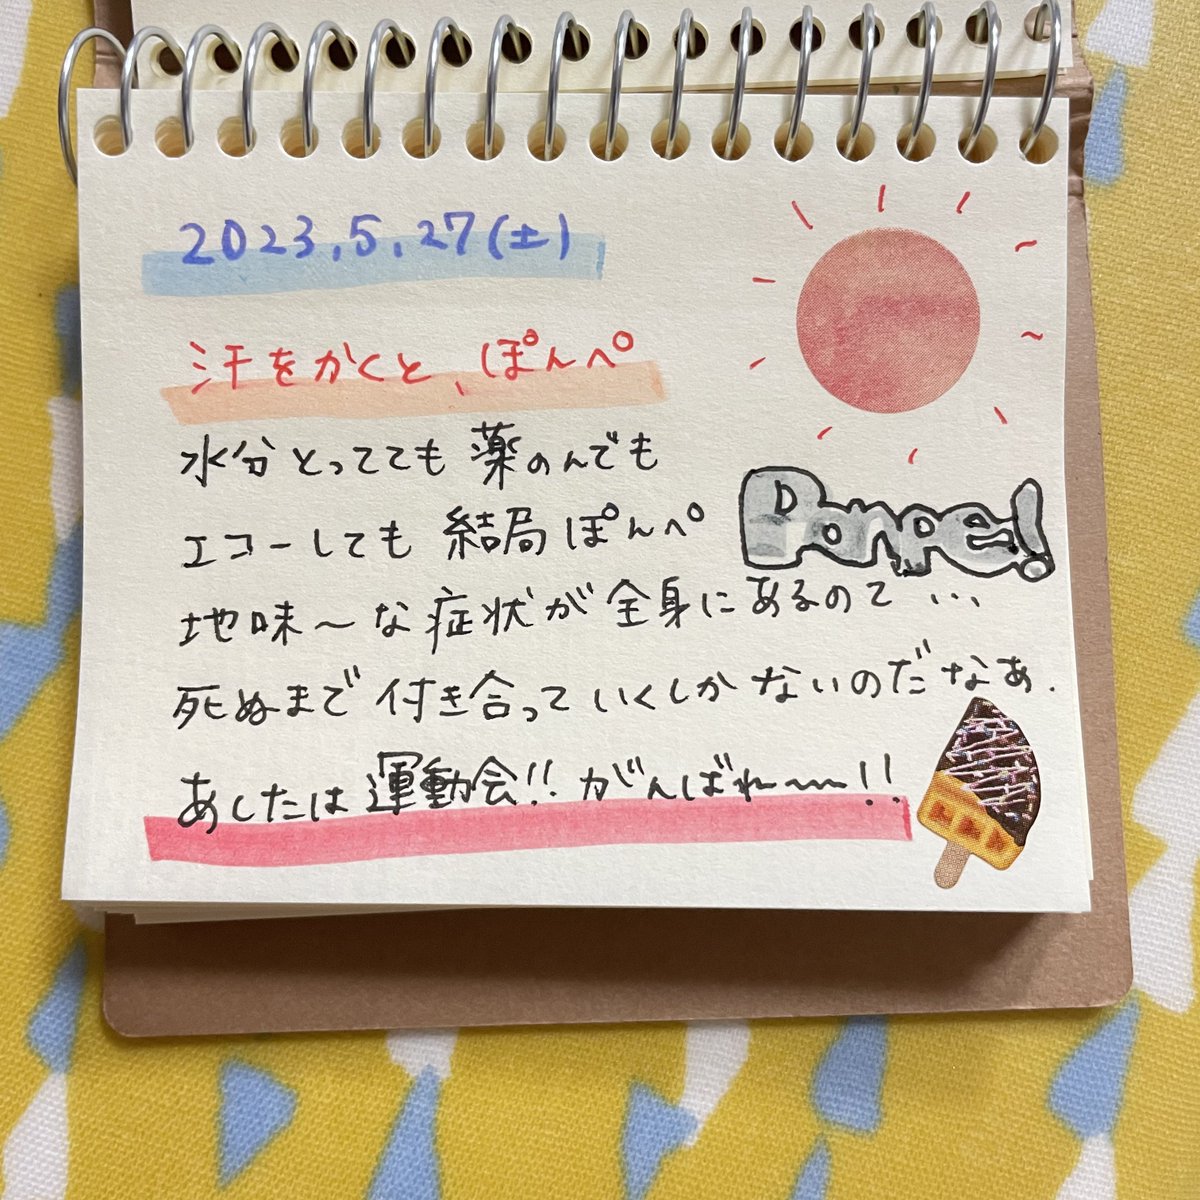 2023.5.27(土)
汗をかくと、ぽんぺ
水分とってても薬のんでも
エコーしても結局ぽんぺ
Ponpe!
地味〜な症状が全身にあるので…
死ぬまで付き合っていくしかないのだなぁ.
あしたは運動会!! がんばれ〜〜!!